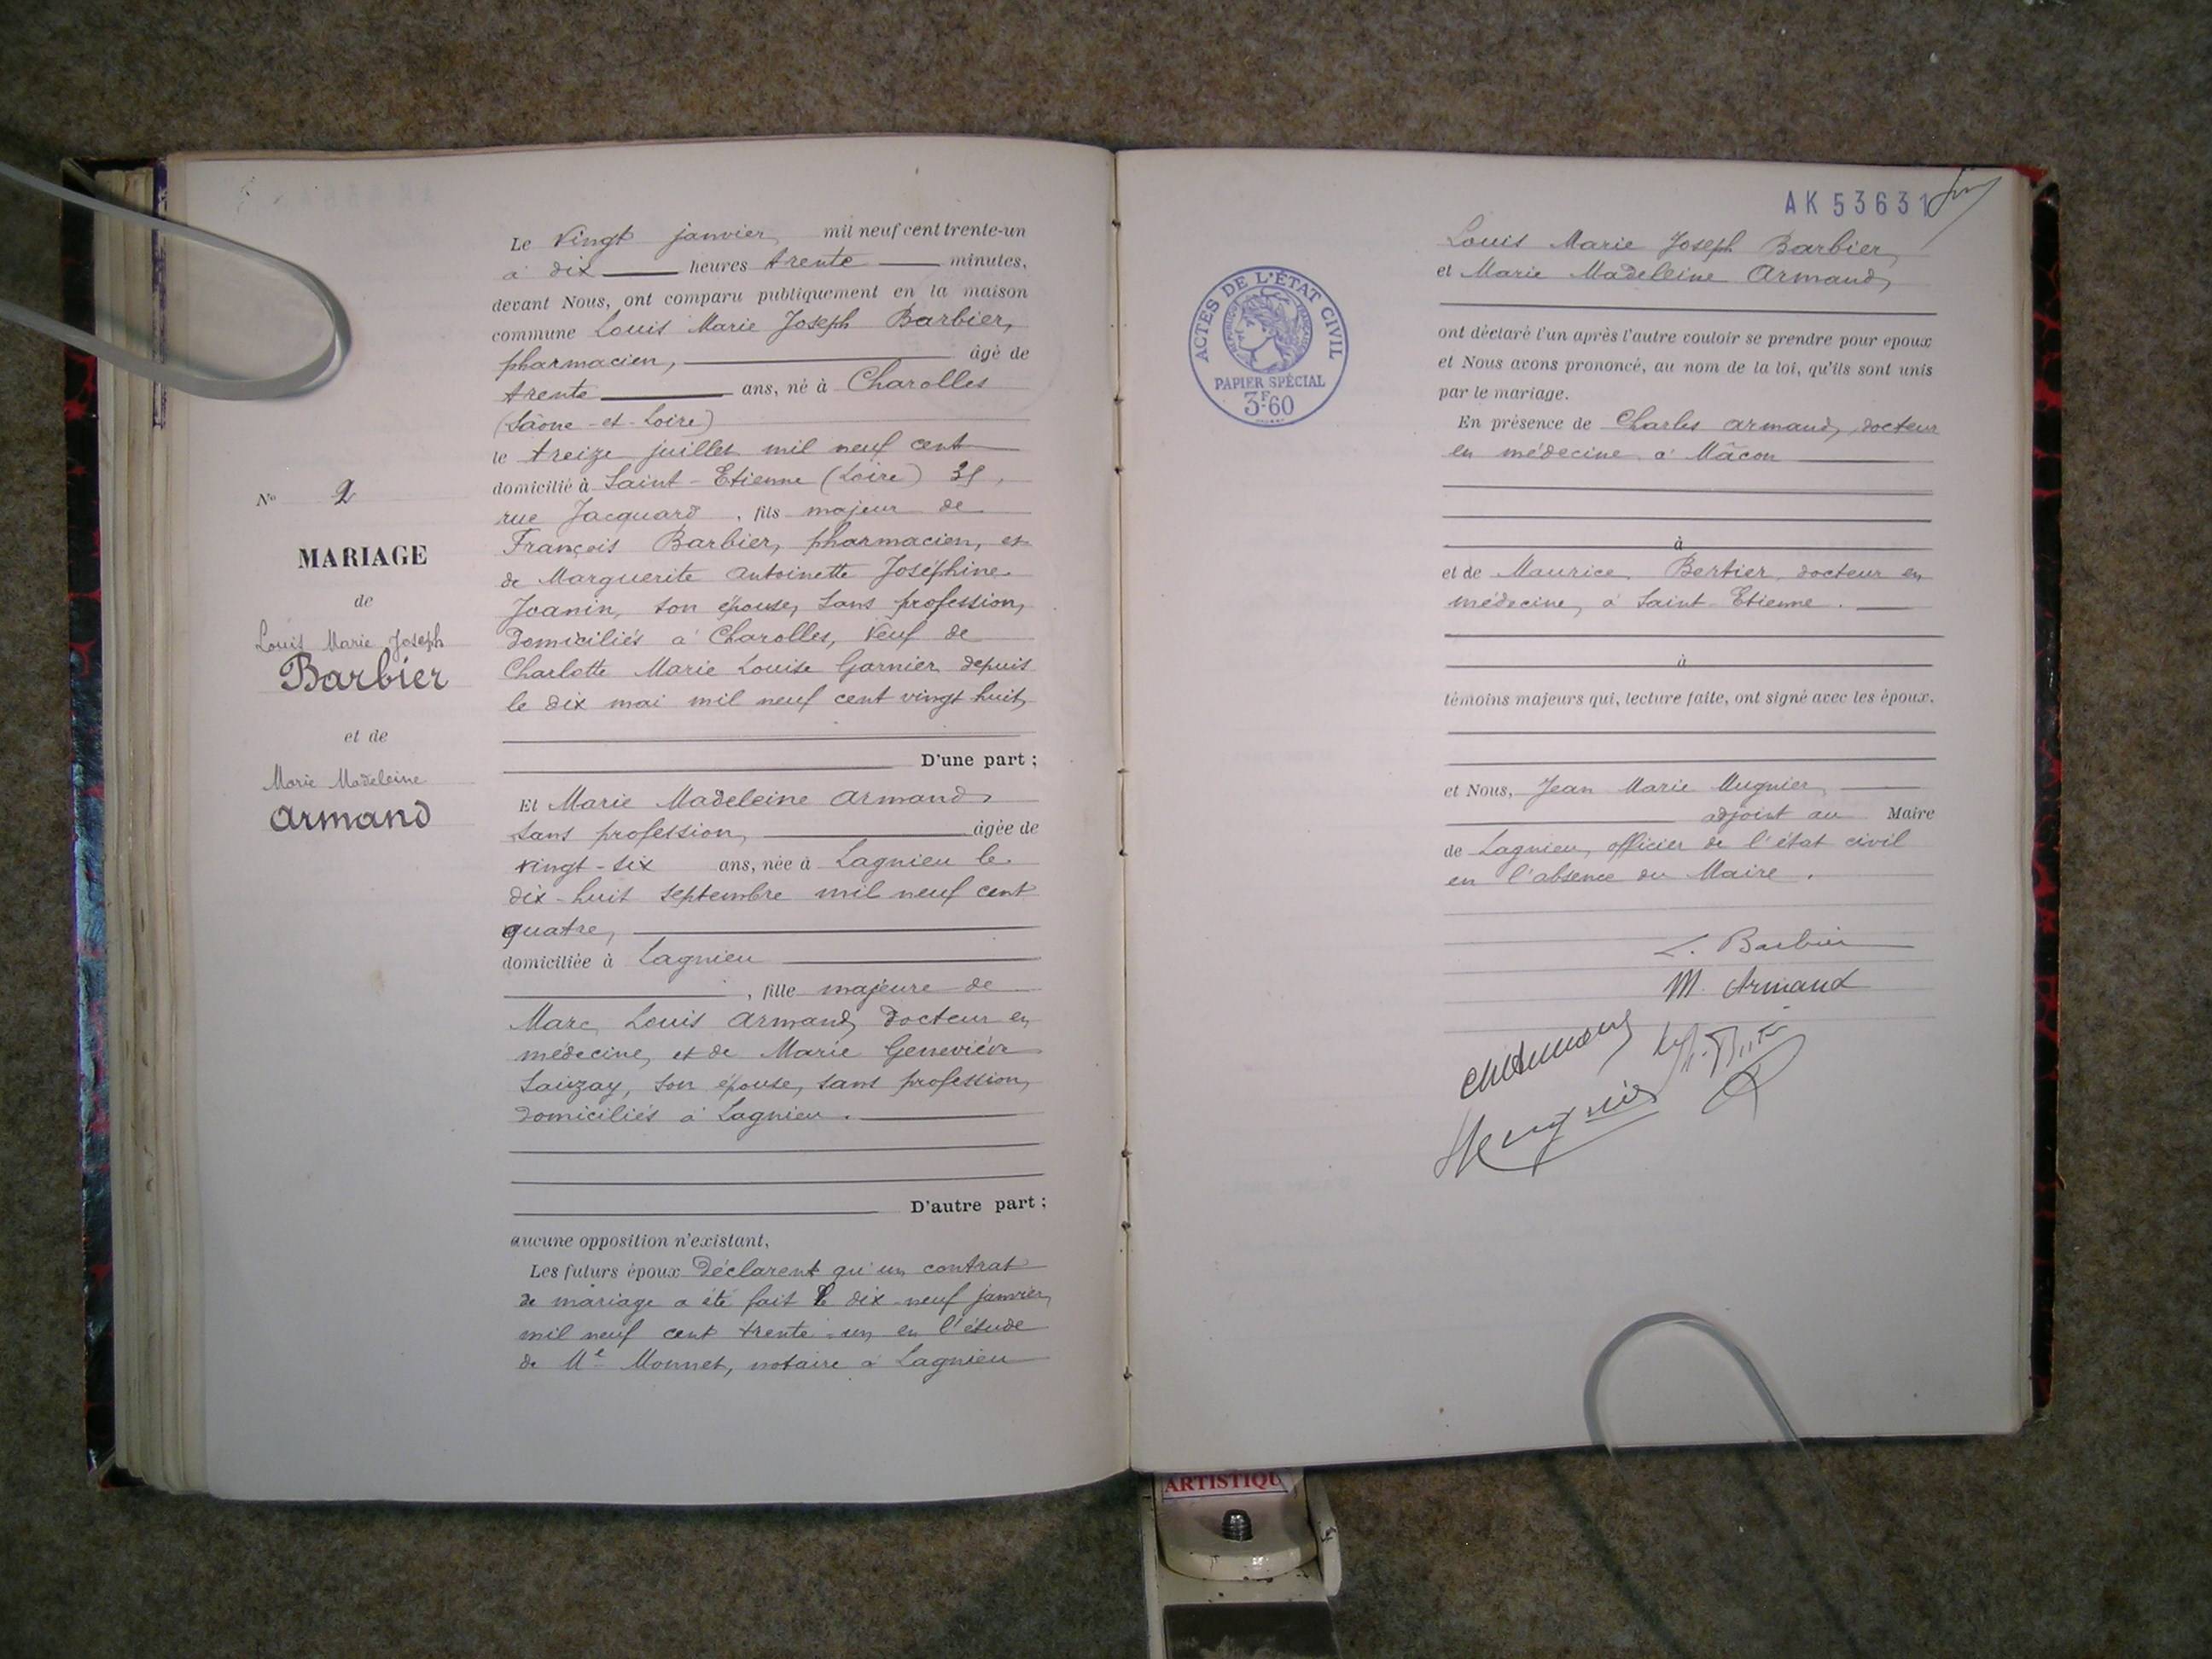 Le vingt janvier, mil neuf cent trente-un
à dix heures trente minutes,
devant Nous, ont comparu publiquement en la maison
commune Louis Marie Joseph Barbier,
pharmacien, âgé de
trente ans, né à Charolles
(Saône-et-Loire)
le treize juillet mil neuf cent
domicilié à Saint-Etienne (Loire)
rue Jacquard, fils majeur de
François Barbier, pharmacien, et
de Marguerite Antoinette Joséphine
Joanin, son épouse, sans profession,
domiciliés à Charolles, veuf de
Charlotte Marie Louise Garnier depuis
le dix mai mil neuf cent vingt huit,
D'une part ;
Et Marie Madeleine Armand,
sans profession, âgée de
vingt-six ans, née à Lagnieu le
dix-huit septembre mil neuf cent
quatre,
domiciliée à Lagnieu
, fille majeure de
Marc Louis Armand, docteur en
médecine, et de Marie Geneviève
Sauzay, son épouse, sans profession,
domiciliés à Lagnieu.
D'autre part ;
aucune opposition n'existant,
Les futurs époux déclarent qu'un contrat
de mariage a été fait le dix-neuf janvier
mil neuf cent trente-un en l'étude
de Me Monnet, notaire à Lagnieu
No 2
MARIAGE
de
Louis Marie Joseph
Barbier
et de
Marie Madeleine
Armand
AK 53631
Louis Marie Joseph Barbier,
et Marie Madeleine Armand,
ont déclaré l'un après l'autre vouloir se prendre pour époux
et Nous avons prononcé, au nom de la loi, qu'ils sont unis
par le mariage.
En présence de Charles Armand, docteur
en médecine à Mâcon
à
et de Maurice Bertier, docteur en
médecine, à Saint-Etienne.
à
témoins majeurs qui, lecture faite, ont signé avec les époux.
et Nous, Jean Marie Mugnier,
adjoint au Maire
de Lagnieu, officier de l'état civil
en l'absence du Maire.
L. Barbier
M. Armand
Mugnier
ACTES DE L'ÉTAT CIVIL
RÉPUBLIQUE FRANÇAISE
PAPIER SPÉCIAL
3F.60
ARTISTIQU